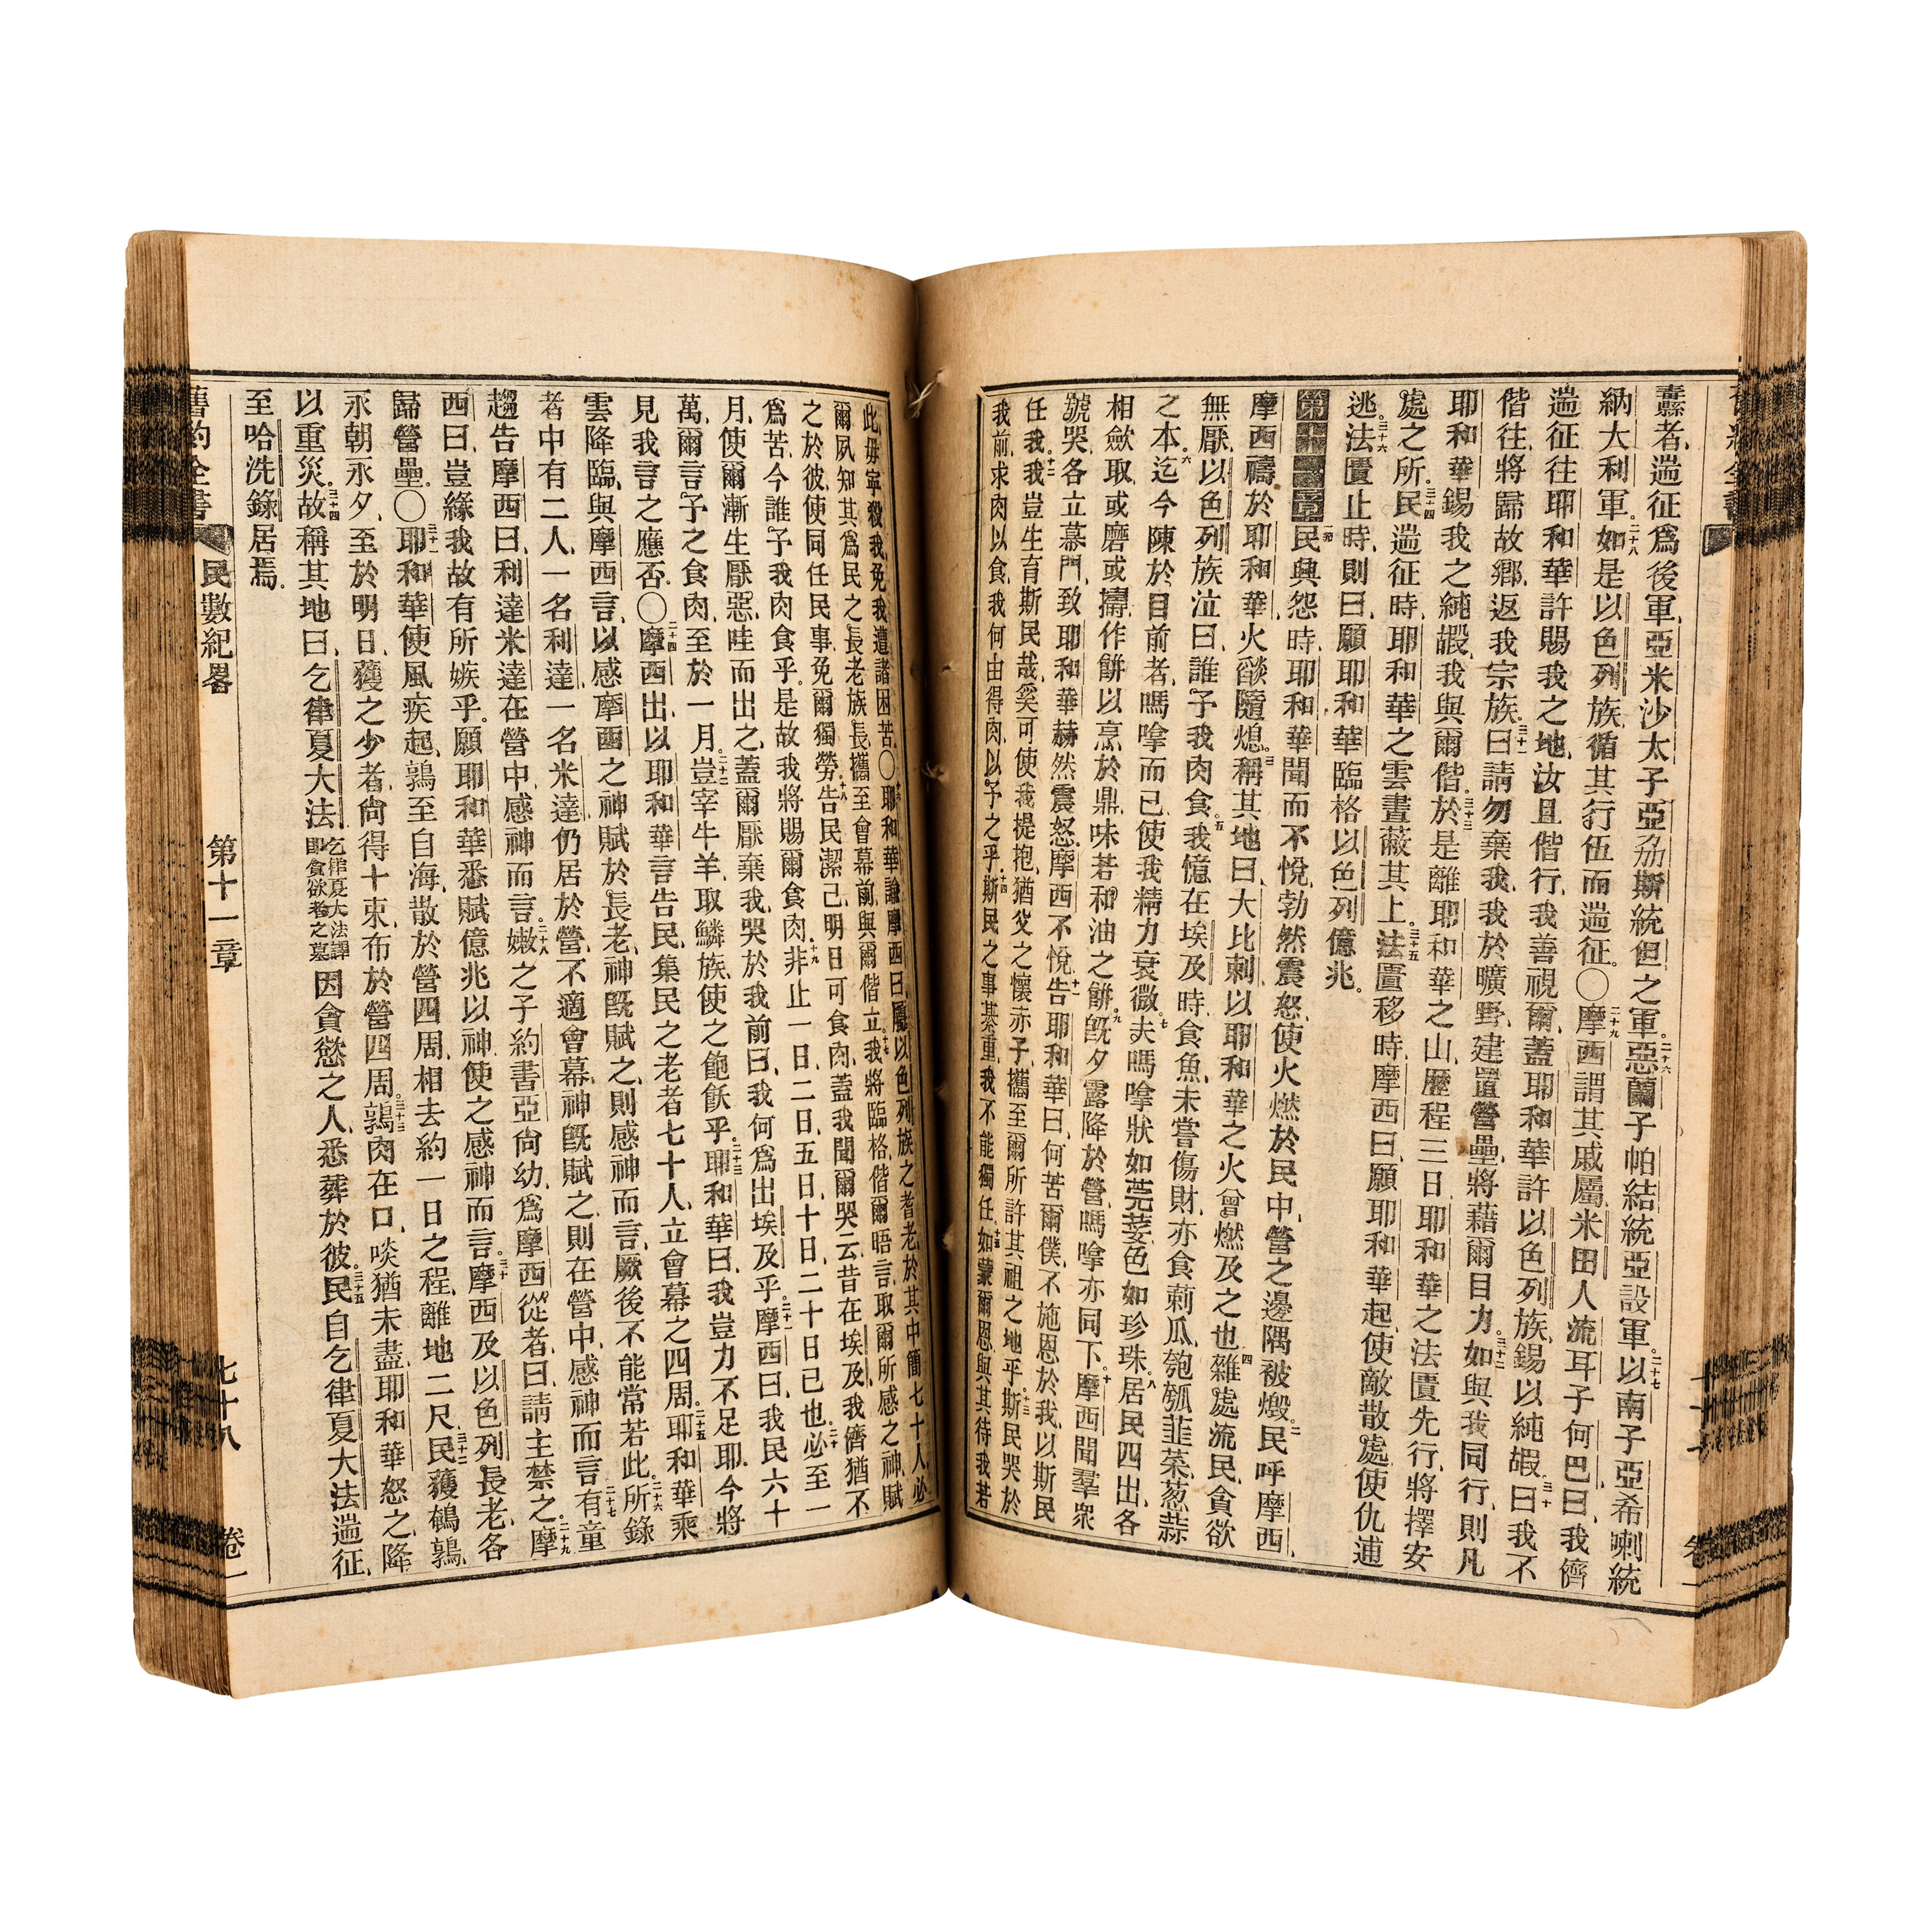 纛者、遄征爲後軍、亞米沙太子亞希以斯統但之軍。二十六惡蘭子帕結統亞設軍。二十七以南子亞希喇統
納大利軍。二十八如是以色列族、循其行伍而遄征。○二十九摩西謂其戚屬、米田人流耳子何巴曰、我儕
遄征往耶和華許賜我之地、汝且偕行、我善視爾、蓋耶和華許以色列族、錫以純嘏。三十曰、我不
偕往、將歸故鄉、返我宗族。三十一曰、請勿棄我、我於曠野、建置營壘、將藉爾目力。三十二如與我同行、則凡
耶和華錫我之純嘏、我與爾偕。三十三於是離耶和華之山、歷程三日、耶和華之法匱先行、將擇安
處之所。三十四民遄征時、耶和華之雲、晝蔽其上。三十五法匱移時、摩西曰、願耶和華起、使敵散處、使仇逋
逃。三十六法匱止時、則曰、願耶和華臨格以色列億兆。
第十一章 一節民興怨時、耶和華聞而不悅、勃然震怒、使火燃於民中、營之邊隅被燬。二民呼摩西、
摩西禱於耶和華、火燄隨熄。三稱其地曰大比剌、以耶和華之火、曾燃及之也。四雜處流民、貪欲
無厭、以色列族泣曰、誰予我肉食。五我憶在埃及時、食魚未嘗傷財、亦食蓏瓜、匏瓠、韭菜、葱蒜
之本。六迄今陳於目前者、嗎嗱而已、使我精力衰微。七夫嗎嗱狀如芫荽、色如珍珠。八居民四出、各
相歛取、或磨或擣、作餅以烹於鼎、味若和油之餅。九旣夕露降於營、嗎嗱亦同下。十摩西聞羣衆
號哭、各立幕門、致耶和華赫然震怒、摩西不悅。十一告耶和華曰、何苦爾僕、不施恩於我、以斯民
任我。十二我豈生育斯民哉、奚可使我提抱、猶父之懷赤子、攜至爾所許其祖之地乎。十三斯民哭於
我前、求肉以食、我何由得肉、以予之乎。十四斯民之事綦重、我不能獨任。十五如蒙爾恩、與其待我若
此、毋寧殺我、免我遭諸困苦。○十六耶和華諭摩西曰、團以色列族之耆老、於其中簡七十人、必
爾夙知其爲民之長老、族長、攜至會幕前、與爾偕立。十七我將臨格、偕爾晤言、取爾所感之神、賦
之於彼、使同任民事、免爾獨勞。十八告民潔己、明日可食肉、蓋我聞爾哭云、昔在埃及、我儕猶不
爲苦、今誰予我肉食乎、是故我將賜爾食肉。十九非止一日、二日、五日、十日、二十日已也。二十必至一
月、使爾漸生厭惡、哇而出之、蓋爾厭棄我、哭於我前曰、我何爲出埃及乎。二十一摩西曰、我民六十
萬、爾言予之食肉、至於一月。二十二豈宰牛羊、取鱗族、使之飽飫乎。二十三耶和華曰、我豈力不足耶、今將
見我言之應否。○二十四摩西出、以耶和華言告民、集民之老者七十人、立會幕之四周。二十五耶和華乘
雲降臨、與摩西言、以感摩西之神賦於長老、神旣賦之、則感神而言、厥後不能常若此。二十六所錄
者中有二人、一名利達、一名米達、仍居於營、不適會幕、神旣賦之、則在營中、感神而言。二十七有童
趨告摩西曰、利達、米達在營中、感神而言。二十八嫩之子約書亞、尙幼、爲摩西從者、曰、請主禁之。二十九摩
西曰、豈緣我故、有所嫉乎、願耶和華悉賦億兆以神、使之感神而言。三十摩西及以色列長老、各
歸營壘。○三十一耶和華使風疾起、鶉至自海、散於營四周、相去約一日之程、離地二尺。三十二民穫鵪鶉、
永朝永夕、至於明日、穫之少者、尙得十束、布於營四周。三十三鶉肉在口、啖猶未盡、耶和華怒之、降
以重災。三十四故稱其地曰、乞律夏大法、乞律夏大法譯卽貪欲者之墓因貪慾之人、悉葬於彼。三十五民自乞律夏大法遄征、
至哈洗錄居焉。
舊約全書 民數紀畧 第十一章 七十八 卷一